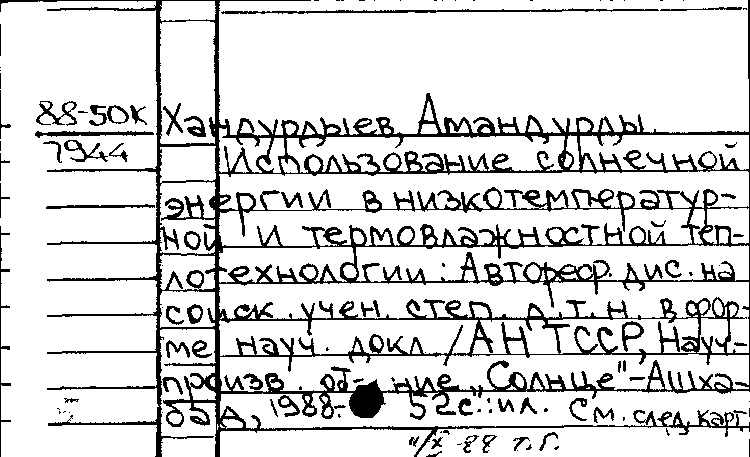 88-50к Хандурдыев, Амандурды.
7944 Использование солнечной
энергии в низкотемператур-
ной и термовлажностной теп-
лотехнологии: Автореф. дис. на
соиск. учен. степ. д.т.н. в фор-
ме науч. докл / АН ТССР, Науч.-
произв. об-ние „Солнце"-Ашха-
бад, 1988.- 52с.: ил. См. след. карт.
88 т.г.